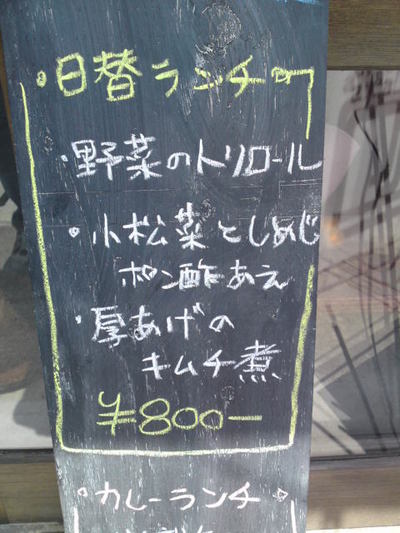 ・日替ランチ
・野菜のトリロール
・小松菜としめじ
ポン酢あえ
・厚あげの
キムチ煮
¥800-
・カレーランチ